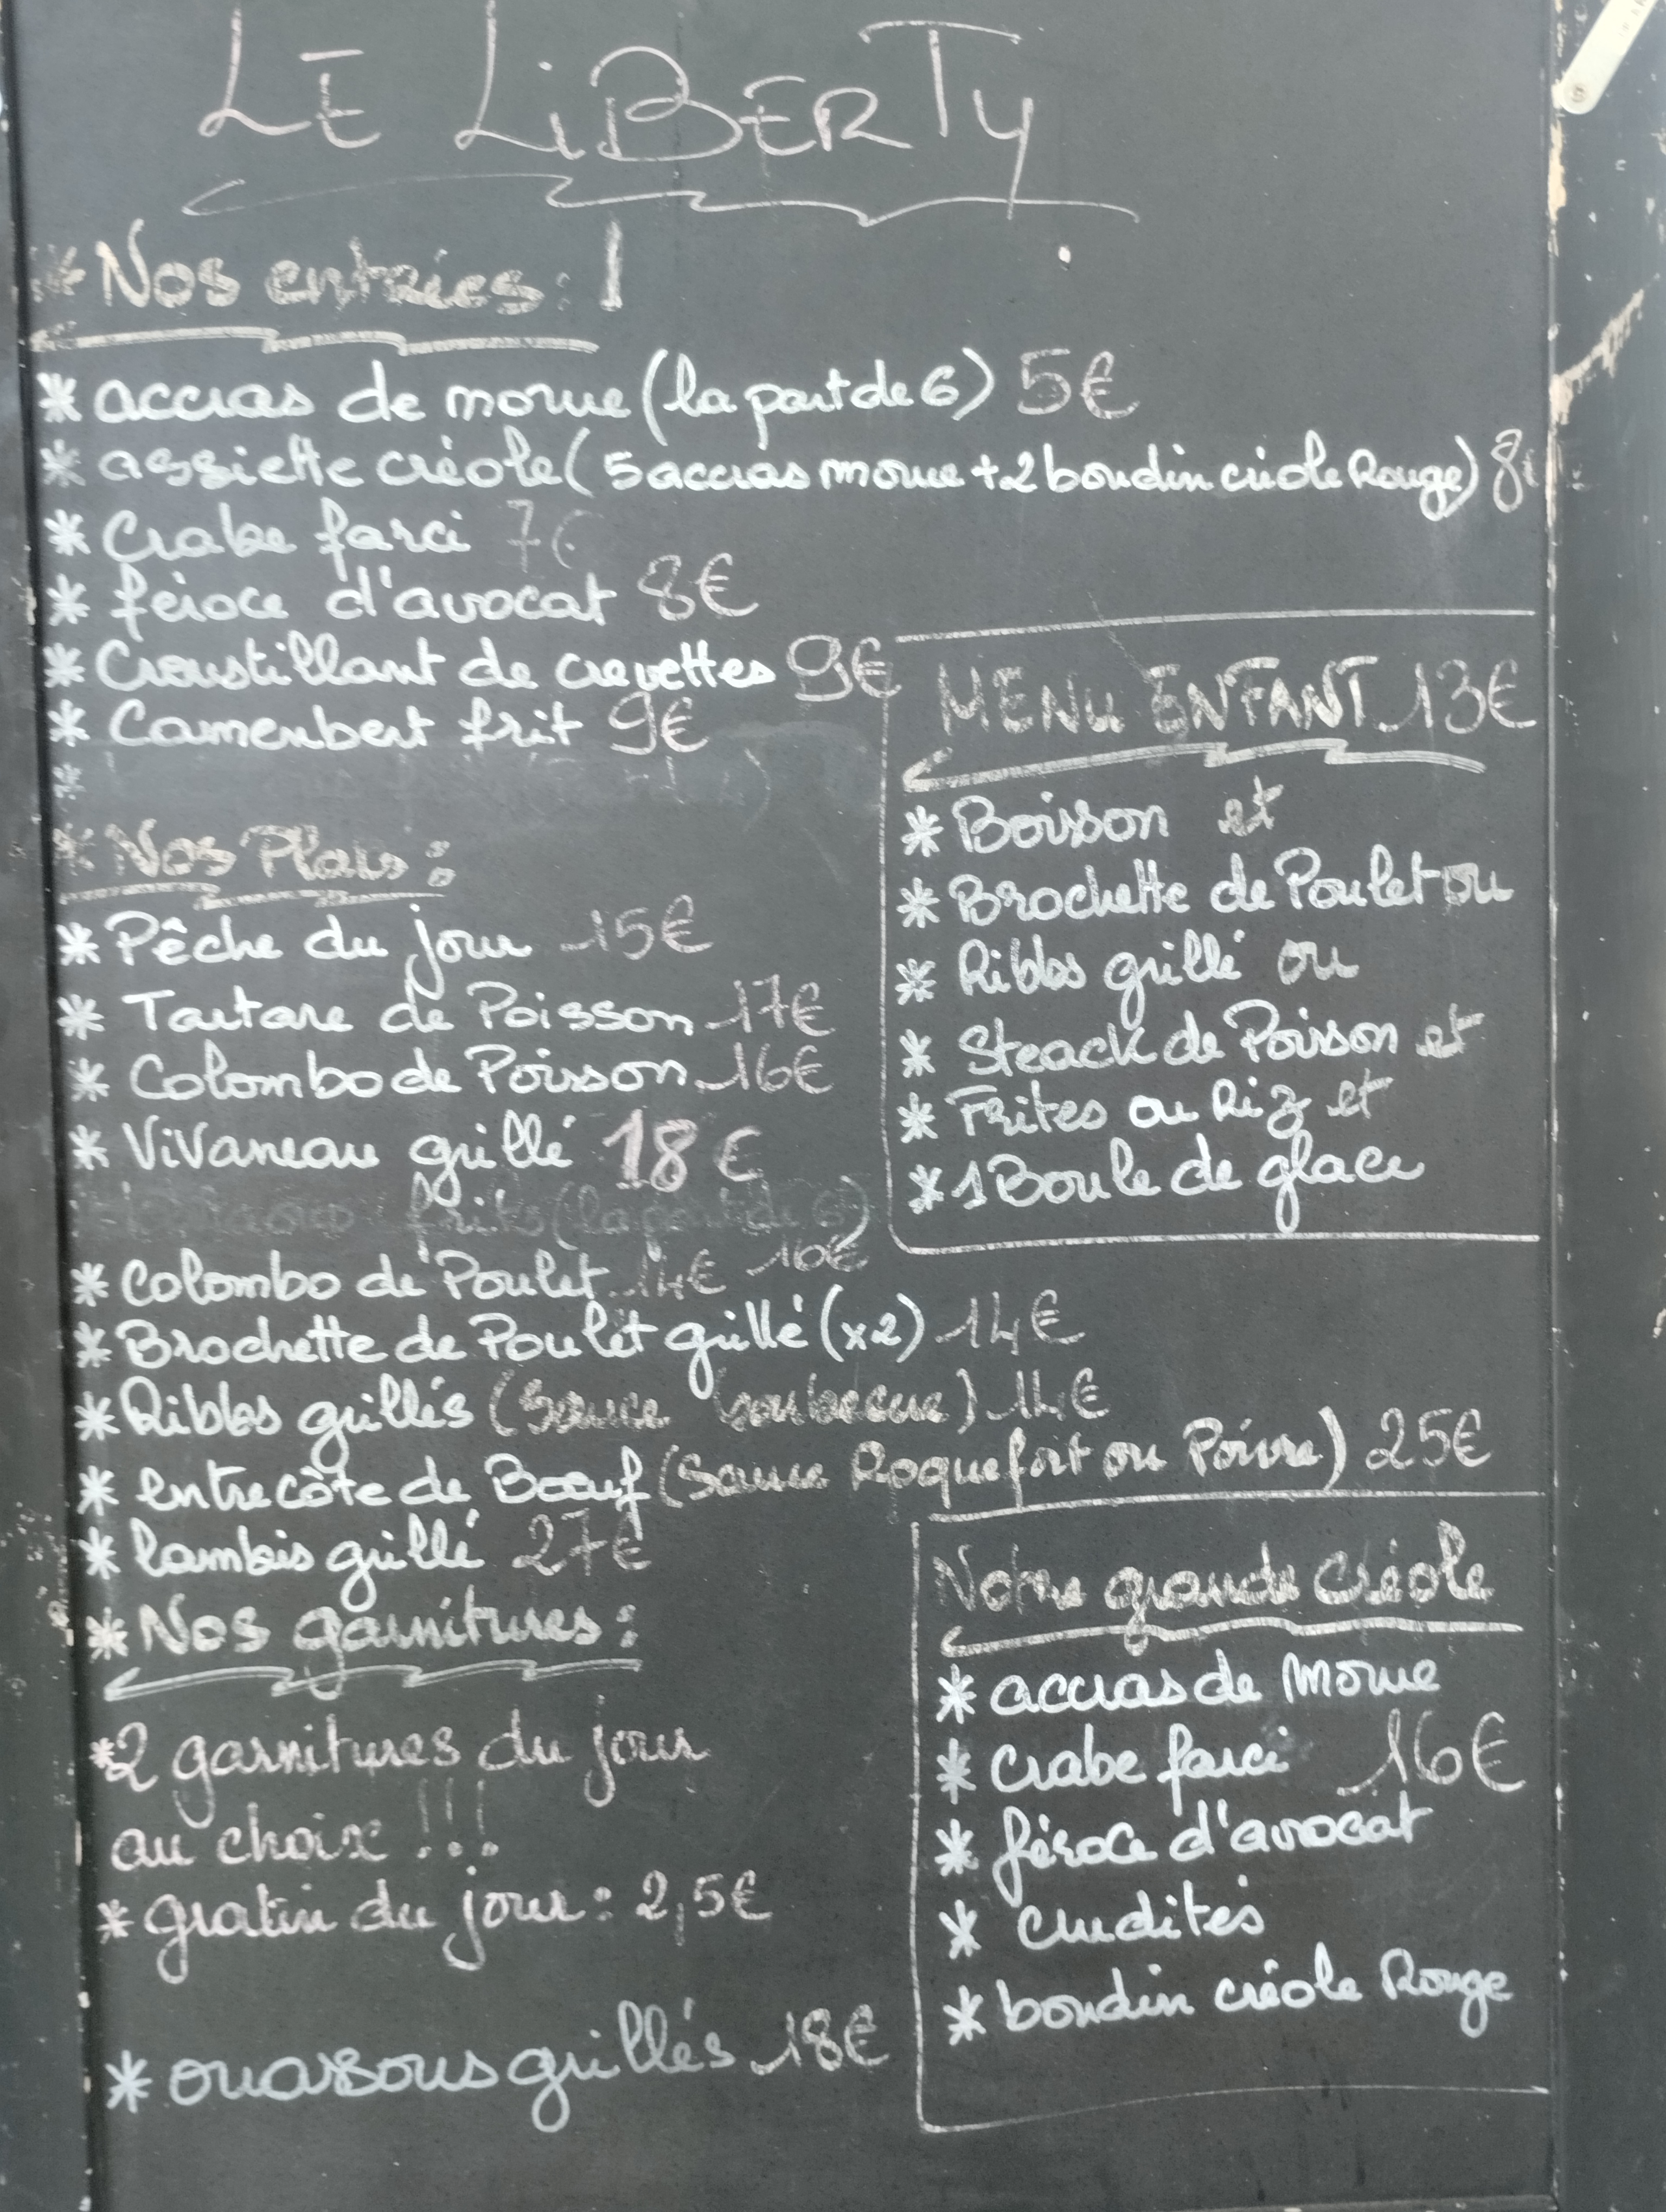 LE LiBERTy
* Nos entrées :
* accras de morue (la part de 6) 5€
* assiette créole ( 5 accras morue + 2 boudin créole Rouge) 8€
* Crabe farci 7€
* féroce d'avocat 8€
* Croustillant de crevettes 9€
* Camembert frit 9€
*
* Nos Plats :
* Pêche du jour 15€
* Tartare de Poisson 17€
* Colombo de Poisson 16€
* ViVaneau grillé 18€
frits (la part de 6) 16€
* Colombo de Poulet 14€
* Brochette de Poulet grillé (x2) 14€
* Ribbs grillés (Sauce barbecue) 14€
* entrecôte de Boeuf (Sauce Roquefort ou Poivre) 25€
* lambis grillé 27€
* Nos garnitures :
*2 garnitures du jour
au choix !!!
* gratin du jour : 2,5€
* ouassous grillés 18€
MENU ENFANT 13€
* Boisson et
* Brochette de Poulet ou
* Ribbs grillé ou
* Steack de Poisson et
* Frites ou Riz et
* 1 Boule de glace
Notre grande Créole
* accras de Morue
* crabe farci 16€
* féroce d'avocat
* crudités
* boudin créole Rouge